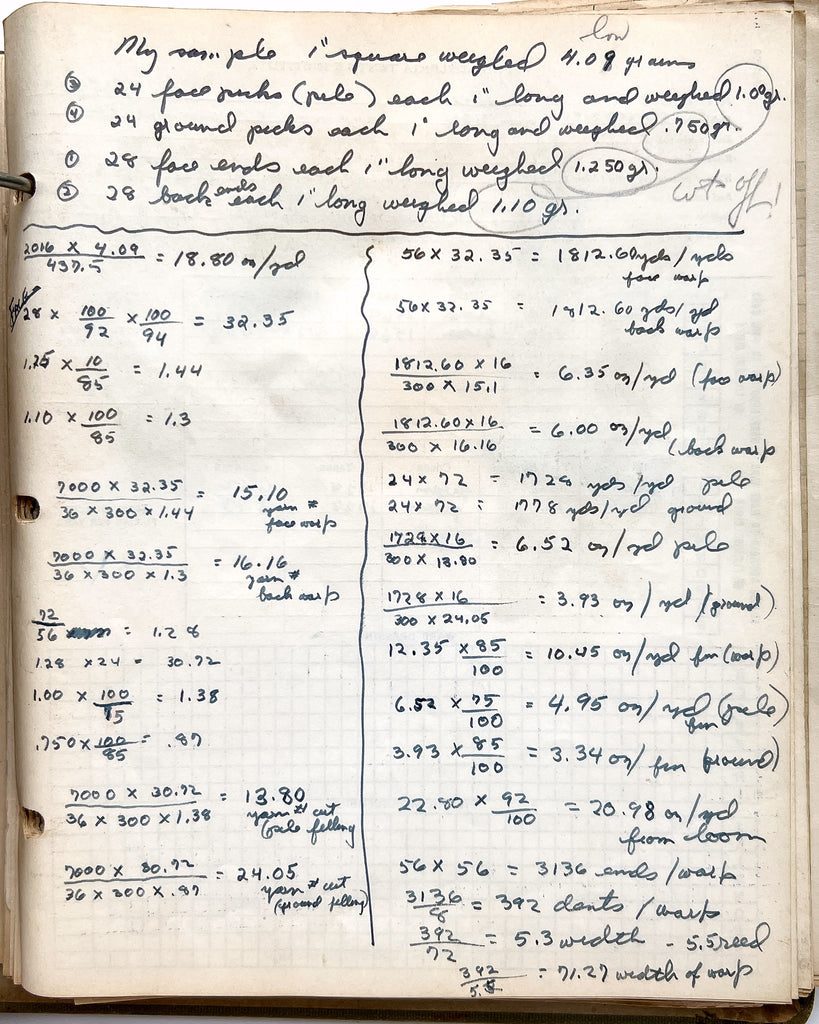 low
My sample 1" square weighed 4.09 grams
③ 24 face picks (pile) each 1" long and weighed 1.00 gr.
④ 24 ground picks each 1" long and weighed .750 gr.
① 28 face ends each 1" long weighed 1.250 gr.
② 28 back ends each 1" long weighed 1.10 gr.
wt off!
2016 × 4.09 / 437.5 = 18.80 oz/yd
28 × 100/92 × 100/94 = 32.35
1.25 × 10/85 = 1.44
1.10 × 100/85 = 1.3
7000 × 32.35 / 36 × 300 × 1.44 = 15.10
yarn #
face warp
7000 × 32.35 / 36 × 300 × 1.3 = 16.16
yarn #
back warp
72/56 = 1.28
1.28 × 24 = 30.72
1.00 × 100/75 = 1.38
.750 × 100/85 = .87
7000 × 30.72 / 36 × 300 × 1.38 = 13.80
yarn # cut
(pile filling
7000 × 30.72 / 36 × 300 × .87 = 24.05
yarn # cut
(ground filling)
56 × 32.35 = 1812.60 yds/yds
face warp
56 × 32.35 = 1812.60 yds/yd
back warp
1812.60 × 16 / 300 × 15.1 = 6.35 oz/yd (face warp)
1812.60 × 16 / 300 × 16.16 = 6.00 oz/yd
(back warp
24 × 72 = 1728 yds/yd pile
24 × 72 = 1778 yds/yd ground
1728 × 16 / 300 × 13.80 = 6.52 oz/yd pile
1728 × 16 / 300 × 24.05 = 3.93 oz/yd (ground)
12.35 × 85/100 = 10.45 oz/yd fin (warp)
6.52 × 75/100 = 4.95 oz/yd (pile)
fin
3.93 × 85/100 = 3.34 oz/fin (ground)
22.80 × 92/100 = 20.98 oz/yd
from loom
56 × 56 = 3136 ends/warp
3136/8 = 392 dents/warp
392/72 = 5.3 width - 5.5 reed
392/5.5 = 71.27 width of warp